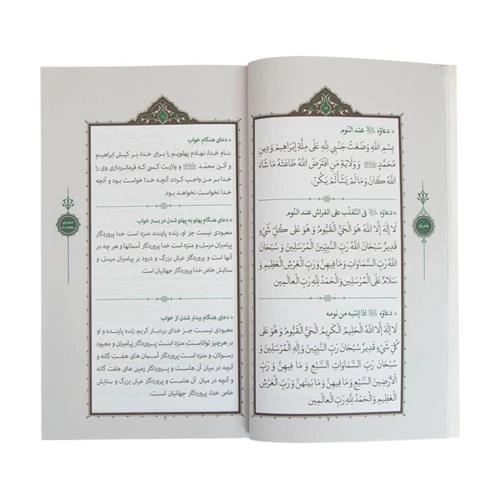 دعاؤه ﷺ عند النّوم
بِسْمِ اللَّهِ وَضَعْتُ جَنْبِي لِلَّهِ عَلَى مِلَّةِ إِبْرَاهِيمَ وَدِينِ
مُحَمَّدٍ ﷺ وَوِلَايَةِ مَنِ افْتَرَضَ اللَّهُ طَاعَتَهُ مَا شَاءَ
اللَّهُ كَانَ وَمَا لَمْ يَشَأْ لَمْ يَكُنْ.
دعاؤه ﷺ فی التقلّب علی الفراش عند النّوم
لَا إِلَهَ إِلَّا اللَّهُ الْحَيُّ الْقَيُّومُ وَهُوَ عَلَى كُلِّ شَيْءٍ
قَدِيرٌ سُبْحَانَ اللَّهِ رَبِّ النَّبِيِّينَ وَإِلَهِ الْمُرْسَلِينَ وَسُبْحَانَ
اللَّهِ رَبِّ السَّمَاوَاتِ وَمَا فِيهِنَّ وَرَبِّ الْعَرْشِ الْعَظِيمِ وَ
سَلَامٌ عَلَى الْمُرْسَلِينَ وَالْحَمْدُ لِلَّهِ رَبِّ الْعَالَمِينَ
دعاؤه ﷺ اذا انتبه من نومه
لَا إِلَهَ إِلَّا اللَّهُ الْحَلِيمُ الْكَرِيمُ الْحَيُّ الْقَيُّومُ وَ هُوَ عَلَى
كُلِّ شَيْءٍ قَدِيرٌ سُبْحَانَ رَبِّ النَّبِيِّينَ وَإِلَهِ الْمُرْسَلِينَ وَ
سُبْحَانَ رَبِّ السَّمَاوَاتِ السَّبْعِ وَمَا فِيهِنَّ وَ رَبِّ
الْأَرَضِينَ السَّبْعِ وَ مَا فِيهِنَّ وَ مَا بَيْنَهُنَّ وَ رَبِّ الْعَرْشِ
الْعَظِيمِ وَالْحَمْدُ لِلَّهِ رَبِّ الْعَالَمِينَ
دعای هنگام خواب
بنام خدا، نهادم پهلویم را برای خدا، بر کیش ابراهیم
و آئین محمّد ﷺ و ولایت کسی که فرمانبرداری وی را
خدا بر من واجب کرده، آنچه خدا خواست بود و آنچه
خدا نخواست نخواهد بود.
دعای هنگام پهلو به پهلو شدن در بستر خواب
معبودی نیست جز او، زنده پاینده، و او بر همه چیز
تواناست، منزه است خدا پروردگار پیامبران و معبود
پیامبران مرسل، و منزه است خدا پروردگار آسمانها و هر چه در
آنهاست و پروردگار عرش بزرگ و درود بر پیامبران مرسل، و
ستایش خاص خدا پروردگار جهانیان است.
دعای هنگام بیدار شدن از خواب
معبودی نیست جز خدای بردبار کریم، زنده پاینده، و او
بر هرچیز تواناست، منزه است پروردگار پیامبران و معبود
رسولان، و منزه است پروردگار آسمان های هفت گانه و
آنچه در میان آن هاست و پروردگار زمین های هفت گانه
و آنچه در میان آن هاست و پروردگار عرش بزرگ و ستایش
خاص خدا، پروردگار جهانیان است.